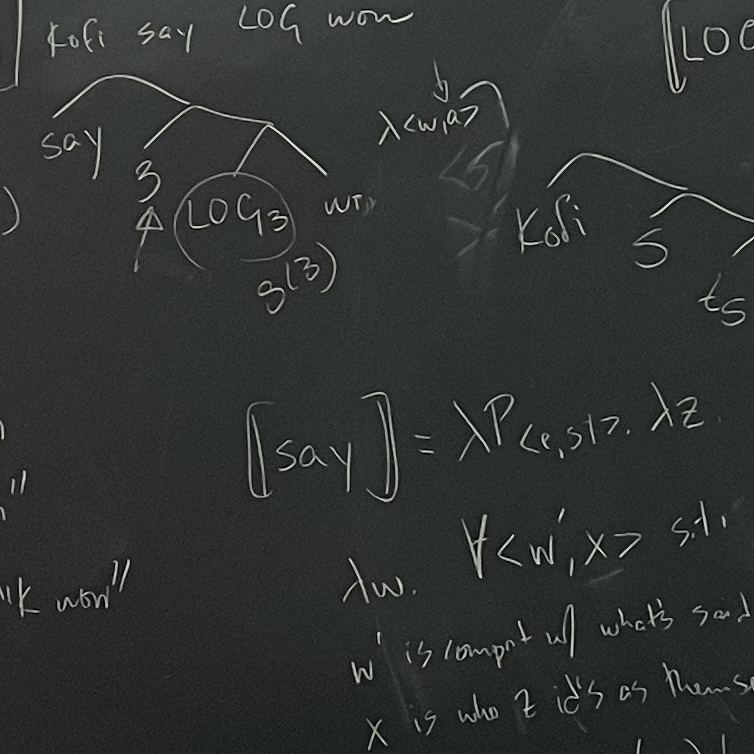 Kofi say LOG won
[[LOG
say
3
LOG3
g(3)
λ<w,a>
Kofi
5
t5
)
[[say]] = λP<e,st>. λz.
"
λw. ∀<w',x> s.t.
"K won"
w' is compat w/ what's said
x is who z id's as themse